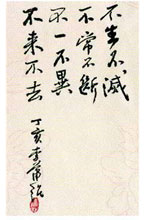 不生不滅
不常不斷
不一不異
不来不去
丁亥李蕭錕